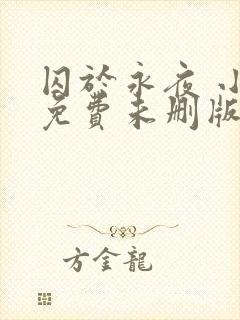 囚於永夜 小
免費未刪版
方金龍